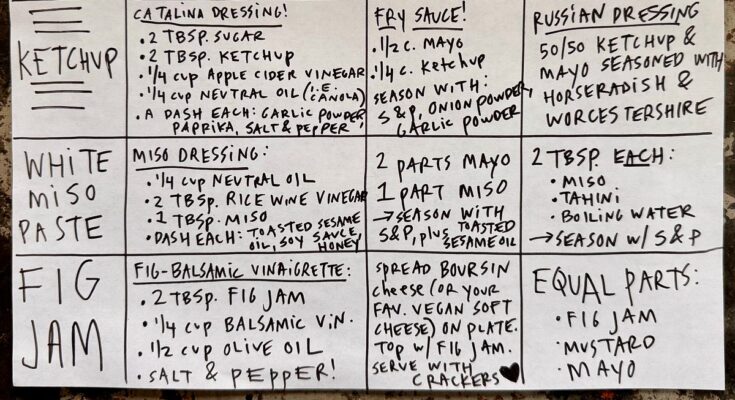 KETCHUP
CATALINA DRESSING!
• 2 TBSP. SUGAR
• 2 TBSP. KETCHUP
• 1/4 CUP APPLE CIDER VINEGAR
• 1/4 CUP NEUTRAL OIL (I.E. CANOLA)
• A DASH EACH: GARLIC POWDER,
PAPRIKA, SALT & PEPPER!
FRY SAUCE!
• 1/2 C. MAYO
• 1/4 C. KETCHUP
SEASON WITH:
S & P, ONION POWDER,
GARLIC POWDER
RUSSIAN DRESSING
50/50 KETCHUP &
MAYO SEASONED WITH
HORSERADISH &
WORCESTERSHIRE
WHITE
MISO
PASTE
MISO DRESSING:
• 1/4 CUP NEUTRAL OIL
• 2 TBSP. RICE WINE VINEGAR
• 1 TBSP. MISO
• DASH EACH: TOASTED SESAME
OIL, SOY SAUCE,
HONEY
2 PARTS MAYO
1 PART MISO
→ SEASON WITH
S&P, PLUS TOASTED
SESAME OIL
2 TBSP. EACH:
• MISO
• TAHINI
• BOILING WATER
→ SEASON W/ S & P
FIG
JAM
FIG-BALSAMIC VINAIGRETTE:
• 2 TBSP. FIG JAM
• 1/4 CUP BALSAMIC VIN.
• 1/2 CUP OLIVE OIL
• SALT & PEPPER!
SPREAD BOURSIN
CHEESE (OR YOUR
FAV. VEGAN SOFT
CHEESE) ON PLATE.
TOP W/ FIG JAM.
SERVE WITH
CRACKERS ♥
EQUAL PARTS:
• FIG JAM
• MUSTARD
• MAYO